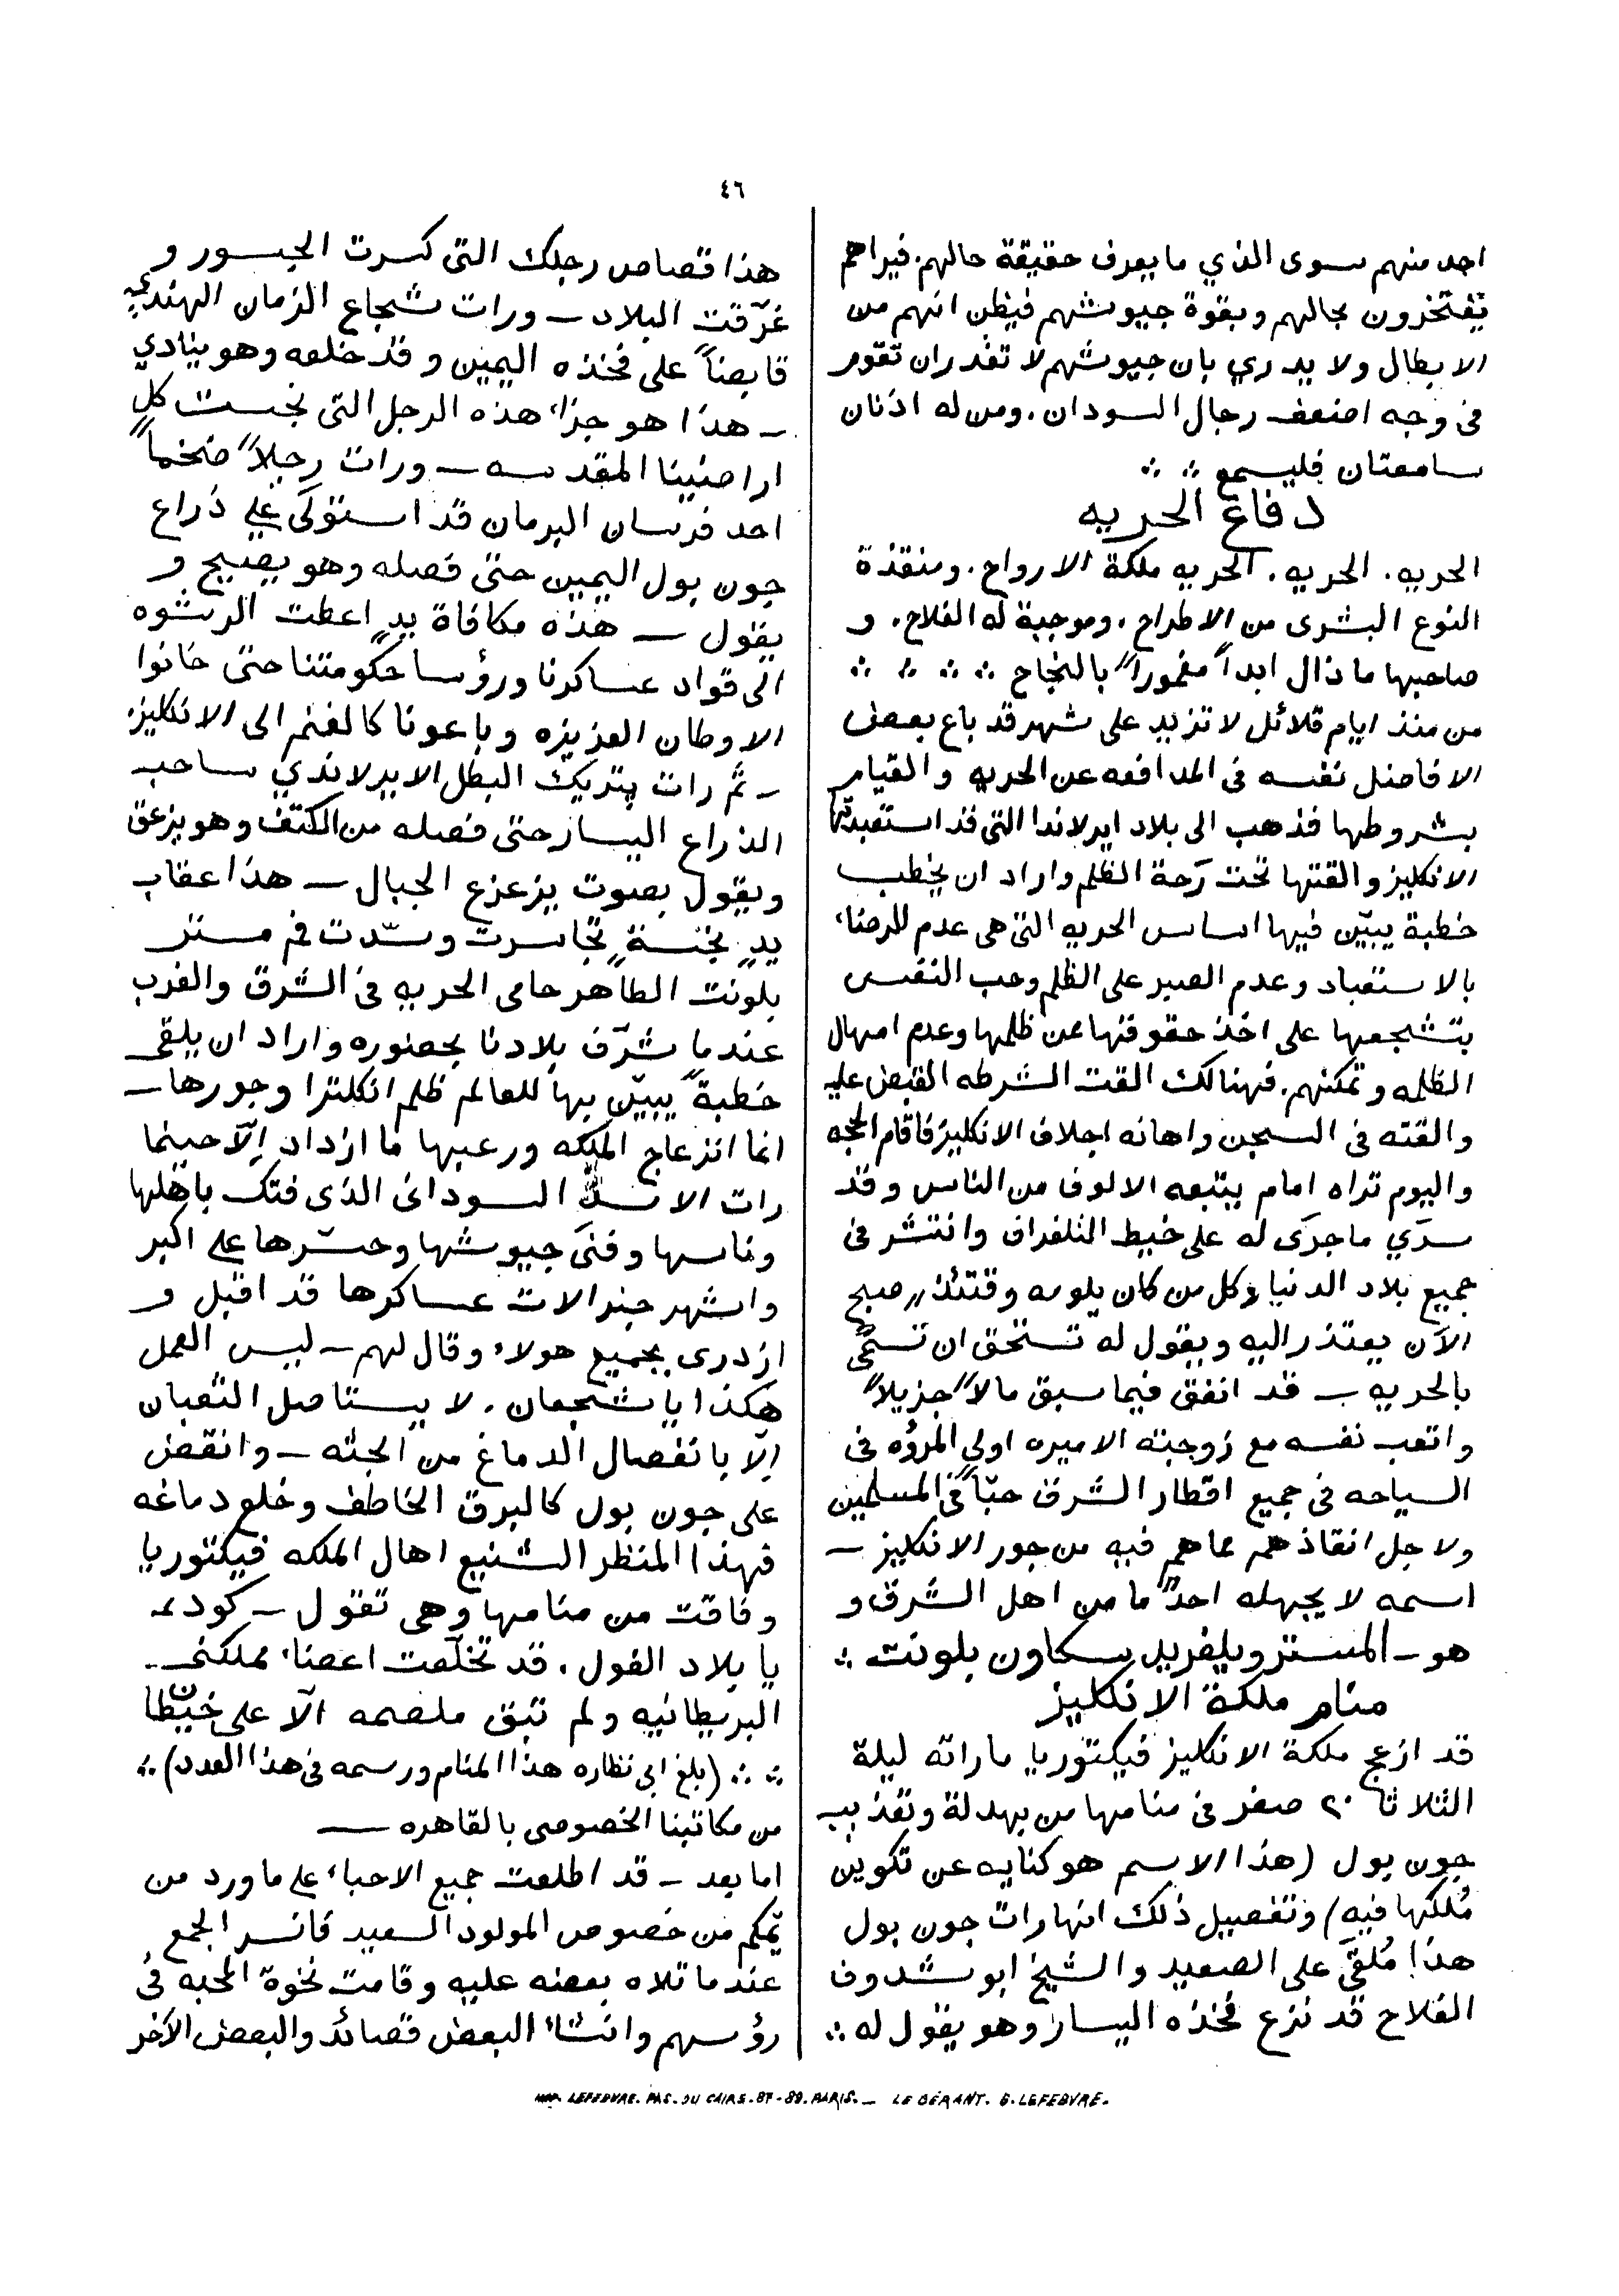 ٤٦
احد منهم سوى الذي ما يعرف حقيقة حالهم. فيراهم
يفتخرون بحالهم وبقوة جيوشهم فيظن انهم من
الابطال ولا يدري بان جيوشهم لا تقدر ان تقوم
فى وجه اضعف رجال السودان. ومن له اذنان
سامعتان فليسمع ∴ ∴
دفاع الحريه
الحريه. الحريه. الحريه ملكة الارواح. ومنقذة
النوع البشرى من الاطراح. وموجبة له الفلاح. و
صاحبها ما ذال ابداً مغموراً بالنجاح ∴ ∴ ∴ ∴
من منذ ايام قلائل لا تزيد على شهر قد باع بعض
الافاضل نفسه فى المدافعه عن الحريه والقيام
بشروطها فذهب الى بلاد ايرلاندا التى قد استعبدتها
الانكليز والقتها تحت رَحة الظلم واراد ان يخطب
خطبة يبيّن فيها اساس الحريه التى هى عدم الرضاء
بالاستعباد وعدم الصبر على الظلم وحب النفس
بتشجعها على اخذ حقوقها من ظلمها وعدم امهال
الظلمه وتمكنهم. فهنالك القت الشرطه القبض عليه
والقته فى السجن واهانه اجلاف الانكليز فاقام الحجه
واليوم تراه امام يتبعه الالوف من الناس وقد
سرَي ما جرَى له على خيط التلغراف وانتشر فى
جميع بلاد الدنيا وكل من كان يلومه وقتئذ صبح
الآن يعتذر اليه ويقول له تستحق ان تسمَّى
بالحريه ــ قد انفق فيما سبق مالاً جزيلاً
واتعب نفسه مع زوجته الاميره اولي المروُه فى
السياحه فى جميع اقطار الشرق حبّاً فى المسلمين
ولاجل انقاذهم مما هم فيه من جور الانكليز ــ
اسمه لا يجهله احدٌ ما من اهل الشرق و
هو ــ المستر ويلفريد سكاون بلونت ∴
منام ملكة الانكليز
قد ازعج ملكة الانكليز فيكتوريا ما راته ليلة
الثلاثا ٢٠ صفر فى منامها من بهدلة وتعذيب
جون بول (هذا الاسم هو كنايه عن تكوين
مُلكها فيه) وتفصيل ذلك انها رات جون بول
هذا مُلقىً على الصعيد والشيخ ابو شدوف
الفلاح قد نزع فخذه اليسار وهو يقول له ∴
هذا قصاص رجلك التى كسرت الجسور و
غرّقت البلاد ــ ورات شجاع الزمان الهندي
قابضاً على فخذه اليمين وقد خلعه وهو ينادي
ــ هذا هو جزاء هذه الرجل التى نجست كل
اراضينا المقدسه ــ ورات رجلاً ضخماً
احد فرسان البرمان قد استولَى على ذراع
جون بول اليمين حتى فصله وهو يصيح و
يقول ــ هذه مكافاة يدٍ اعطت الرشوه
الى قواد عساكرنا ورؤسا حكومتنا حتى خانوا
الاوطان العزيزه وباعونا كالغنم الى الانكليز
ــ ثم رات پتريك البطل الايرلاندي ساحب
الذراع اليسار حتى فصله من الكتف وهو يزعق
ويقول بصوت يزعزع الجبال ــ هذا عقاب
يدٍ نجسةٍ تجاسرت وسدّت فم مستر
بلونت الطاهر حامى الحريه فى الشرق والغرب
عندما شرّف بلادنا بحضوره واراد ان يلقى
خطبةً يبيّن بها للعالم ظلم انكلترا وجورها ــ
انما انزعاج الملكه ورعبها ما ازداد اِلّا حينما
رات الاسد السودانى الذى فتك باهلها
وناسها وفنَى جيوشها وحسّرها على اكبر
واشهر جنرالات عساكرها قد اقبل و
ازدرى بجميع هولاء وقال لهم ــ ليس العمل
هكذا يا شجعان. لا يستاصل الثعبان
اِلّا بانفصال الدماغ من الجثه ــ وانقض
على جون بول كالبرق الخاطف وخلع دماغه
فهذا المنظر الشنيع اهال الملكه فيكتوريا
وفاقت من منامها وهى تقول ــ كودم
يا بلاد الفول. قد تخلّعت اعضاء مملكتى ــ
البريطانيه ولم تبق ملصمه اّلا على خيطان
∴ ∴ (بلغ ابى نظاره هذا المنام ورسمه فى هذا العدد) ∴
من مكاتبنا الخصوصى بالقاهره ــ
اما بعد ــ قد اطلعت جميع الاحباء على ما ورد من
من خصوص المولود السعيد فانسر الجمع
عندما تلاه بعضه عليه وقامت نخوة المحبه فى
رؤسهم وانشاء البعض قصائد والبعض الآخر
IMP. LEFEBVRE. PAS. DU CAIRE. 87-89. PARIS. — LE GÉRANT. G. LEFEBVRE.